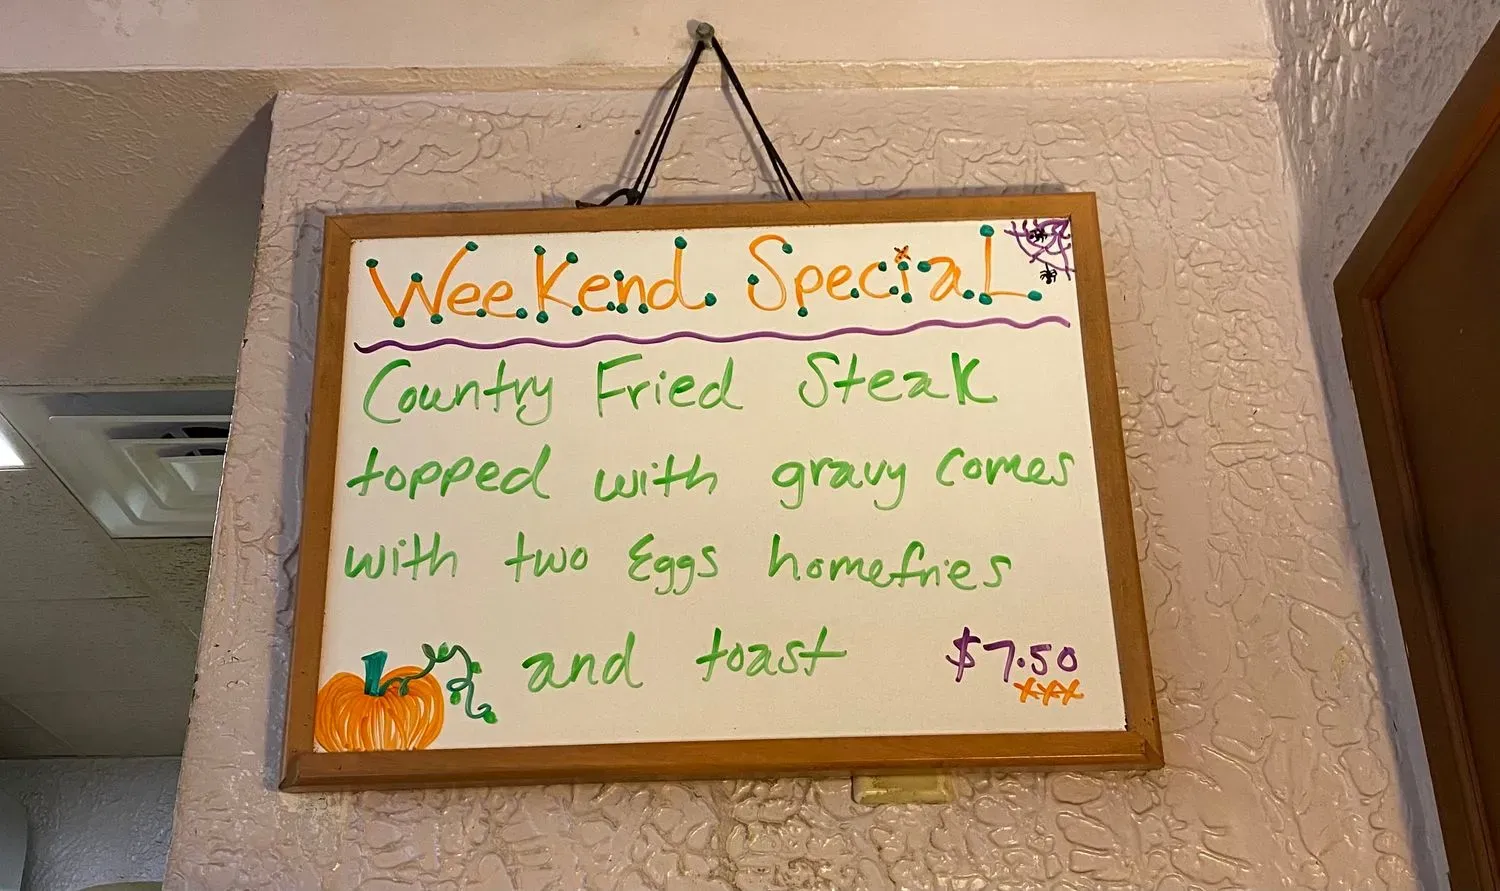 Weekend Special
Country Fried Steak
topped with gravy comes
with two Eggs homefries
and toast $7.50
xxx